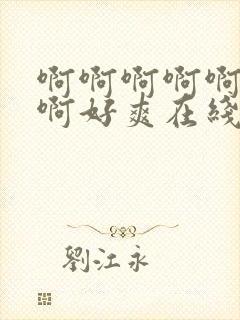 啊啊啊啊啊
啊好爽在綫
劉江永